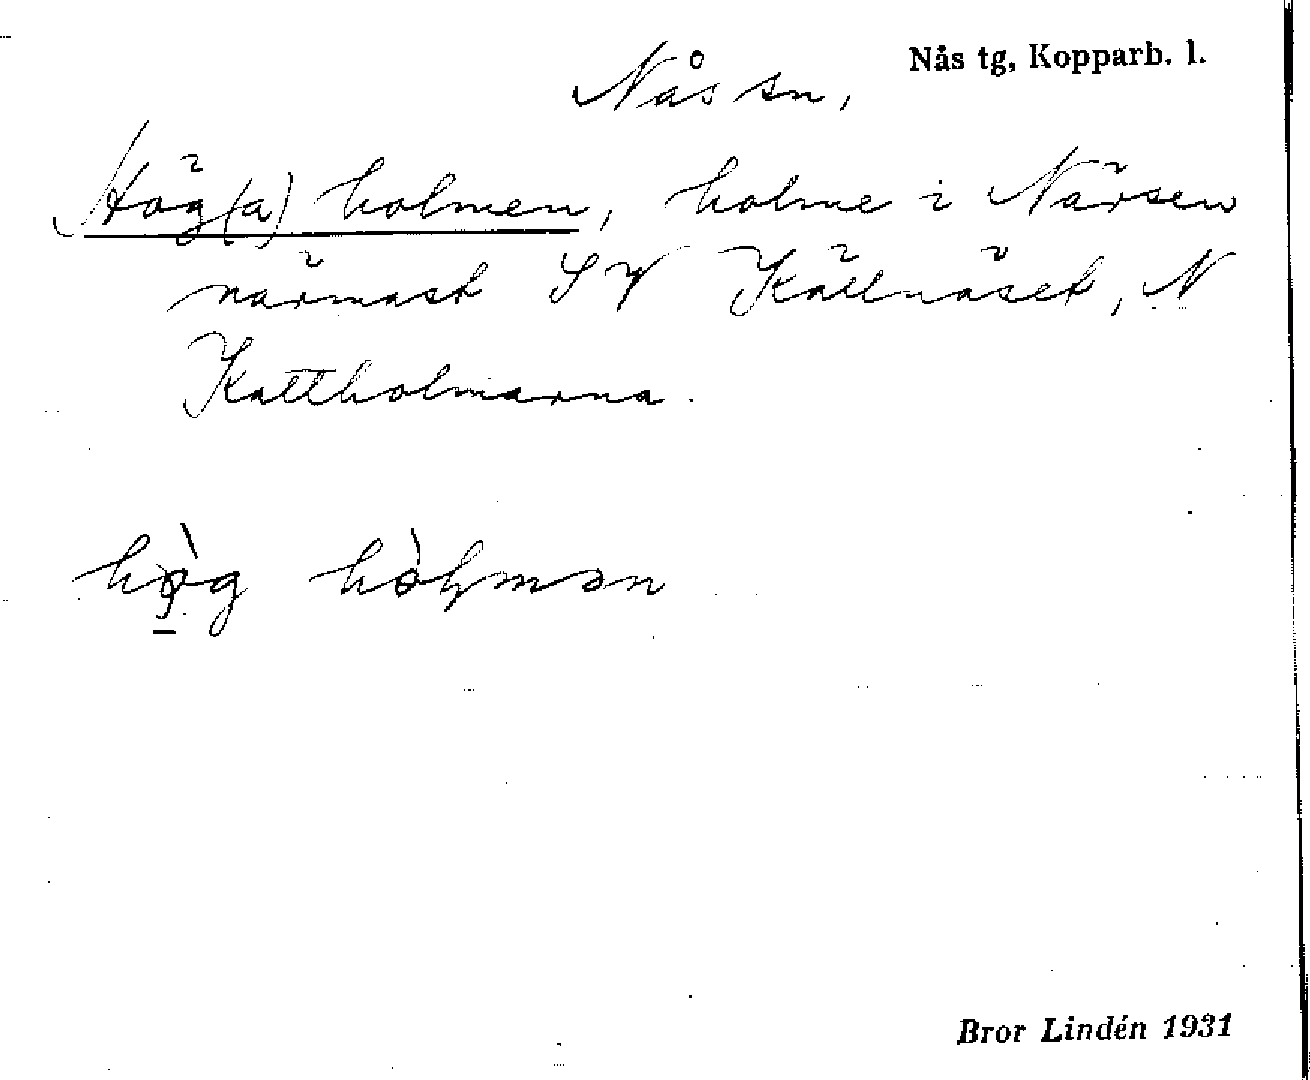 Nås tg, Kopparb. l.
Nås sn,
Hög(a) holmen, holme i Närsen
närmast SV Källnäset, N
Kattholmarna.
Bror Lindén 1931